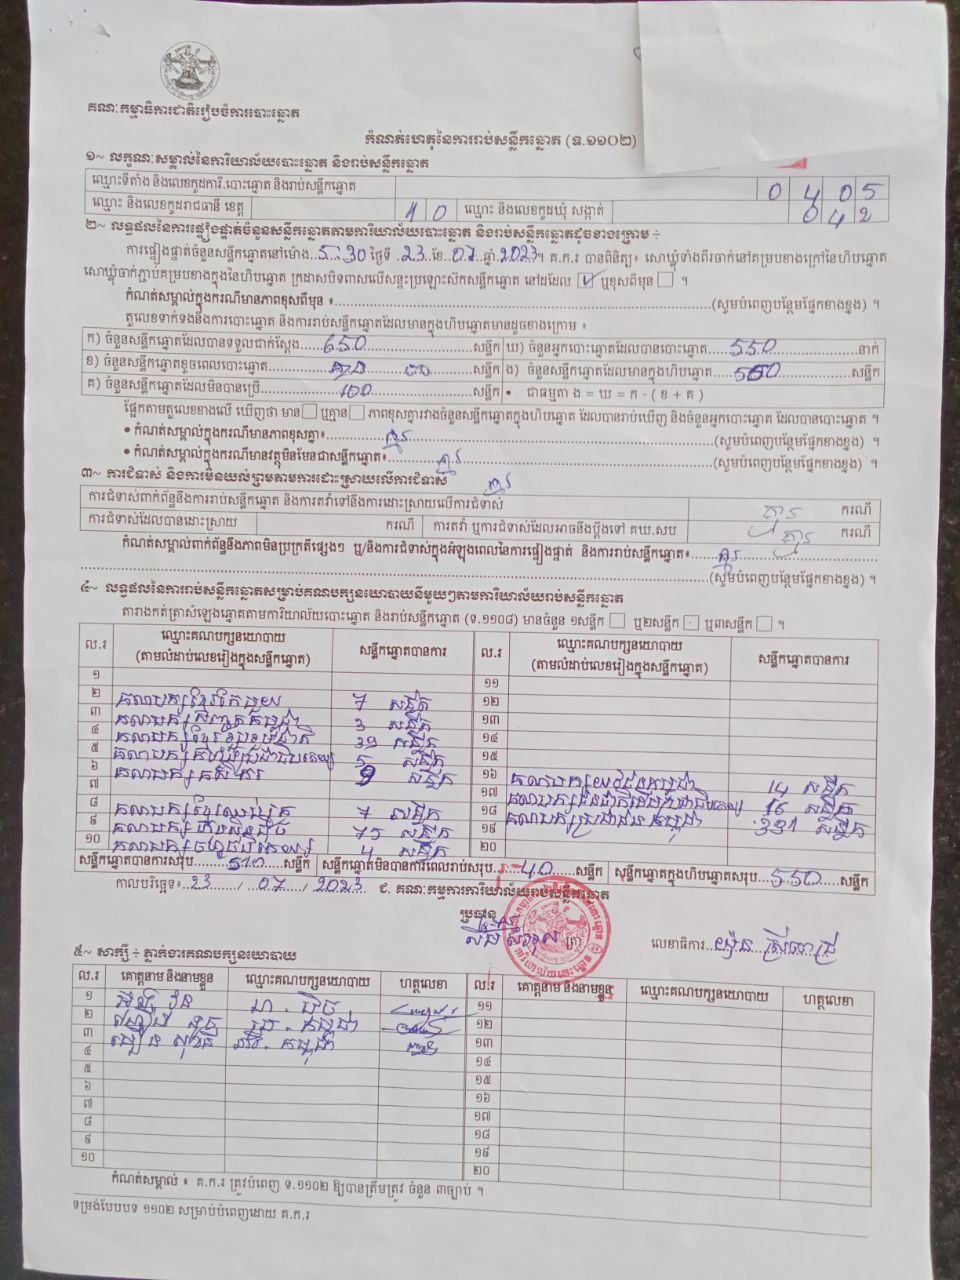 គណៈកម្មាធិការជាតិរៀបចំការបោះឆ្នោត
កំណត់ហេតុនៃការរាប់សន្លឹកឆ្នោត (ទ.១១០២)
១~ លក្ខណៈសម្គាល់នៃការិយាល័យបោះឆ្នោត និងរាប់សន្លឹកឆ្នោត
ឈ្មោះទីតាំង និងលេខកូដការិ.បោះឆ្នោត និងរាប់សន្លឹកឆ្នោត 0405
ឈ្មោះ និងលេខកូដរាជធានី ខេត្ត 10 ឈ្មោះ និងលេខកូដឃុំ សង្កាត់ 042
២~ លទ្ធផលនៃការផ្ទៀងផ្ទាត់ចំនួនសន្លឹកឆ្នោតតាមការិយាល័យបោះឆ្នោត និងរាប់សន្លឹកឆ្នោតដូចខាងក្រោម ÷
ការផ្ទៀងផ្ទាត់ចំនួនសន្លឹកឆ្នោតនៅម៉ោង..5..30 ថ្ងៃទី..23..ខែ.07..ឆ្នាំ.2023។ គ.ក.រ បានពិនិត្យ៖ សោឃ្មុំទាំងពីរចាក់នៅគម្របខាងក្រៅនៃហិបឆ្នោត
សោឃ្មុំចាក់ភ្ជាប់គម្របខាងក្នុងនៃហិបឆ្នោត ក្រដាសបិទពាសលើសន្ទះប្រឡោះសិកសន្លឹកឆ្នោត នៅដដែល ☑ ឬខុសពីមុន ☐ ។
កំណត់សម្គាល់ក្នុងករណីមានភាពខុសពីមុន ៖.....(សូមបំពេញបន្ថែមផ្នែកខាងខ្នង) ។
តួលេខទាក់ទងនឹងការបោះឆ្នោត និងការរាប់សន្លឹកឆ្នោតដែលមានក្នុងហិបឆ្នោតមានដូចខាងក្រោម ៖
ក) ចំនួនសន្លឹកឆ្នោតដែលបានទទួលជាក់ស្តែង.....650.....សន្លឹក ឃ) ចំនួនអ្នកបោះឆ្នោតដែលបានបោះឆ្នោត.....550.....នាក់
ខ) ចំនួនសន្លឹកឆ្នោតខូចពេលបោះឆ្នោត.....00.....សន្លឹក ង) ចំនួនសន្លឹកឆ្នោតដែលមានក្នុងហិបឆ្នោត.....550.....សន្លឹក
គ) ចំនួនសន្លឹកឆ្នោតដែលមិនបានប្រើ.....100.....សន្លឹក • ជាធម្មតា ង = ឃ = ក - ( ខ + គ )
ផ្អែកតាមតួលេខខាងលើ ឃើញថា មាន ☐ ឬគ្មាន ☐ ភាពខុសគ្នារវាងចំនួនសន្លឹកឆ្នោតក្នុងហិបឆ្នោត ដែលបានរាប់ឃើញ និងចំនួនអ្នកបោះឆ្នោត ដែលបានបោះឆ្នោត ។
• កំណត់សម្គាល់ក្នុងករណីមានភាពខុសគ្នា៖.....គ្មាន.....(សូមបំពេញបន្ថែមផ្នែកខាងខ្នង) ។
• កំណត់សម្គាល់ក្នុងករណីមានវត្ថុមិនមែនជាសន្លឹកឆ្នោត៖.....គ្មាន.....(សូមបំពេញបន្ថែមផ្នែកខាងខ្នង) ។
៣~ ការជំទាស់ និងការមិនយល់ព្រមតាមការដោះស្រាយលើការជំទាស់ គ្មាន
ការជំទាស់ពាក់ព័ន្ធនឹងការរាប់សន្លឹកឆ្នោត និងការតវ៉ាទៅនឹងការដោះស្រាយលើការជំទាស់ គ្មាន ករណី
ការជំទាស់ដែលបានដោះស្រាយ ករណី ការតវ៉ា ឬការជំទាស់ដែលអាចនឹងប្តឹងទៅ គឃ.សប គ្មាន ករណី
កំណត់សម្គាល់ពាក់ព័ន្ធនឹងភាពមិនប្រក្រតីផ្សេងៗ ឬ/និងការជំទាស់ក្នុងអំឡុងពេលនៃការផ្ទៀងផ្ទាត់ និងការរាប់សន្លឹកឆ្នោត៖.....គ្មាន.....
.....(សូមបំពេញបន្ថែមផ្នែកខាងខ្នង) ។
៤~ លទ្ធផលនៃការរាប់សន្លឹកឆ្នោតសម្រាប់គណបក្សនយោបាយនីមួយៗតាមការិយាល័យរាប់សន្លឹកឆ្នោត
តារាងកត់ត្រាសំឡេងឆ្នោតតាមការិយាល័យបោះឆ្នោត និងរាប់សន្លឹកឆ្នោត (ទ.១១០៨) មានចំនួន ១សន្លឹក ☐ ឬ២សន្លឹក ☐ ឬ៣សន្លឹក ☐ ។
ល.រ ឈ្មោះគណបក្សនយោបាយ (តាមលំដាប់លេខរៀងក្នុងសន្លឹកឆ្នោត) សន្លឹកឆ្នោតបានការ ល.រ ឈ្មោះគណបក្សនយោបាយ (តាមលំដាប់លេខរៀងក្នុងសន្លឹកឆ្នោត) សន្លឹកឆ្នោតបានការ
១ ១១
២ គណបក្សខ្មែរតែមួយ 7 សន្លឹក ១២
៣ 3 សន្លឹក ១៣
៤ គណបក្សខ្មែររួបរួមជាតិ 39 សន្លឹក ១៤
៥ 5 សន្លឹក ១៥
៦ គណបក្សកសិករ 9 សន្លឹក ១៦ គណបក្សយុវជនកម្ពុជា 14 សន្លឹក
៧ ១៧ 16 សន្លឹក
៨ 7 សន្លឹក ១៨ គណបក្សប្រជាជនកម្ពុជា 331 សន្លឹក
៩ គណបក្សហ៊្វុនស៊ិនប៉ិច 75 សន្លឹក ១៩
១០ 4 សន្លឹក ២០
សន្លឹកឆ្នោតបានការសរុប.....510.....សន្លឹក សន្លឹកឆ្នោតមិនបានការពេលរាប់សរុប.....40.....សន្លឹក សន្លឹកឆ្នោតក្នុងហិបឆ្នោតសរុប.....550.....សន្លឹក
កាលបរិច្ឆេទ៖..23...../..07...../..2023 ជ. គណៈកម្មការការិយាល័យរាប់សន្លឹកឆ្នោត
ប្រធាន
ត្រា លេខាធិការ
៥~ សាក្សី ÷ ភ្នាក់ងារគណបក្សនយោបាយ
ល.រ គោត្តនាម និងនាមខ្លួន ឈ្មោះគណបក្សនយោបាយ ហត្ថលេខា ល.រ គោត្តនាម និងនាមខ្លួន ឈ្មោះគណបក្សនយោបាយ ហត្ថលេខា
១ ១១
២ ១២
៣ ១៣
៤ ១៤
៥ ១៥
៦ ១៦
៧ ១៧
៨ ១៨
៩ ១៩
១០ ២០
កំណត់សម្គាល់ ៖ គ.ក.រ ត្រូវបំពេញ ទ.១១០២ ឱ្យបានត្រឹមត្រូវ ចំនួន ៣ច្បាប់ ។
ទម្រង់បែបបទ ១១០២ សម្រាប់បំពេញដោយ គ.ក.រ